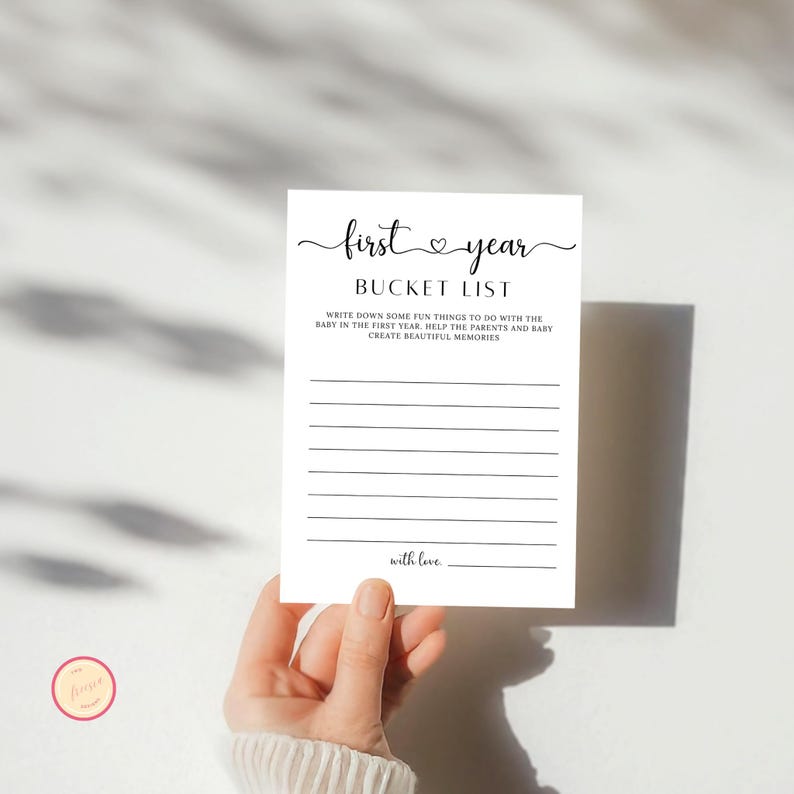 first year
BUCKET LIST
WRITE DOWN SOME FUN THINGS TO DO WITH THE
BABY IN THE FIRST YEAR. HELP THE PARENTS AND BABY
CREATE BEAUTIFUL MEMORIES
with love,
TWO
freesia
DESIGNS